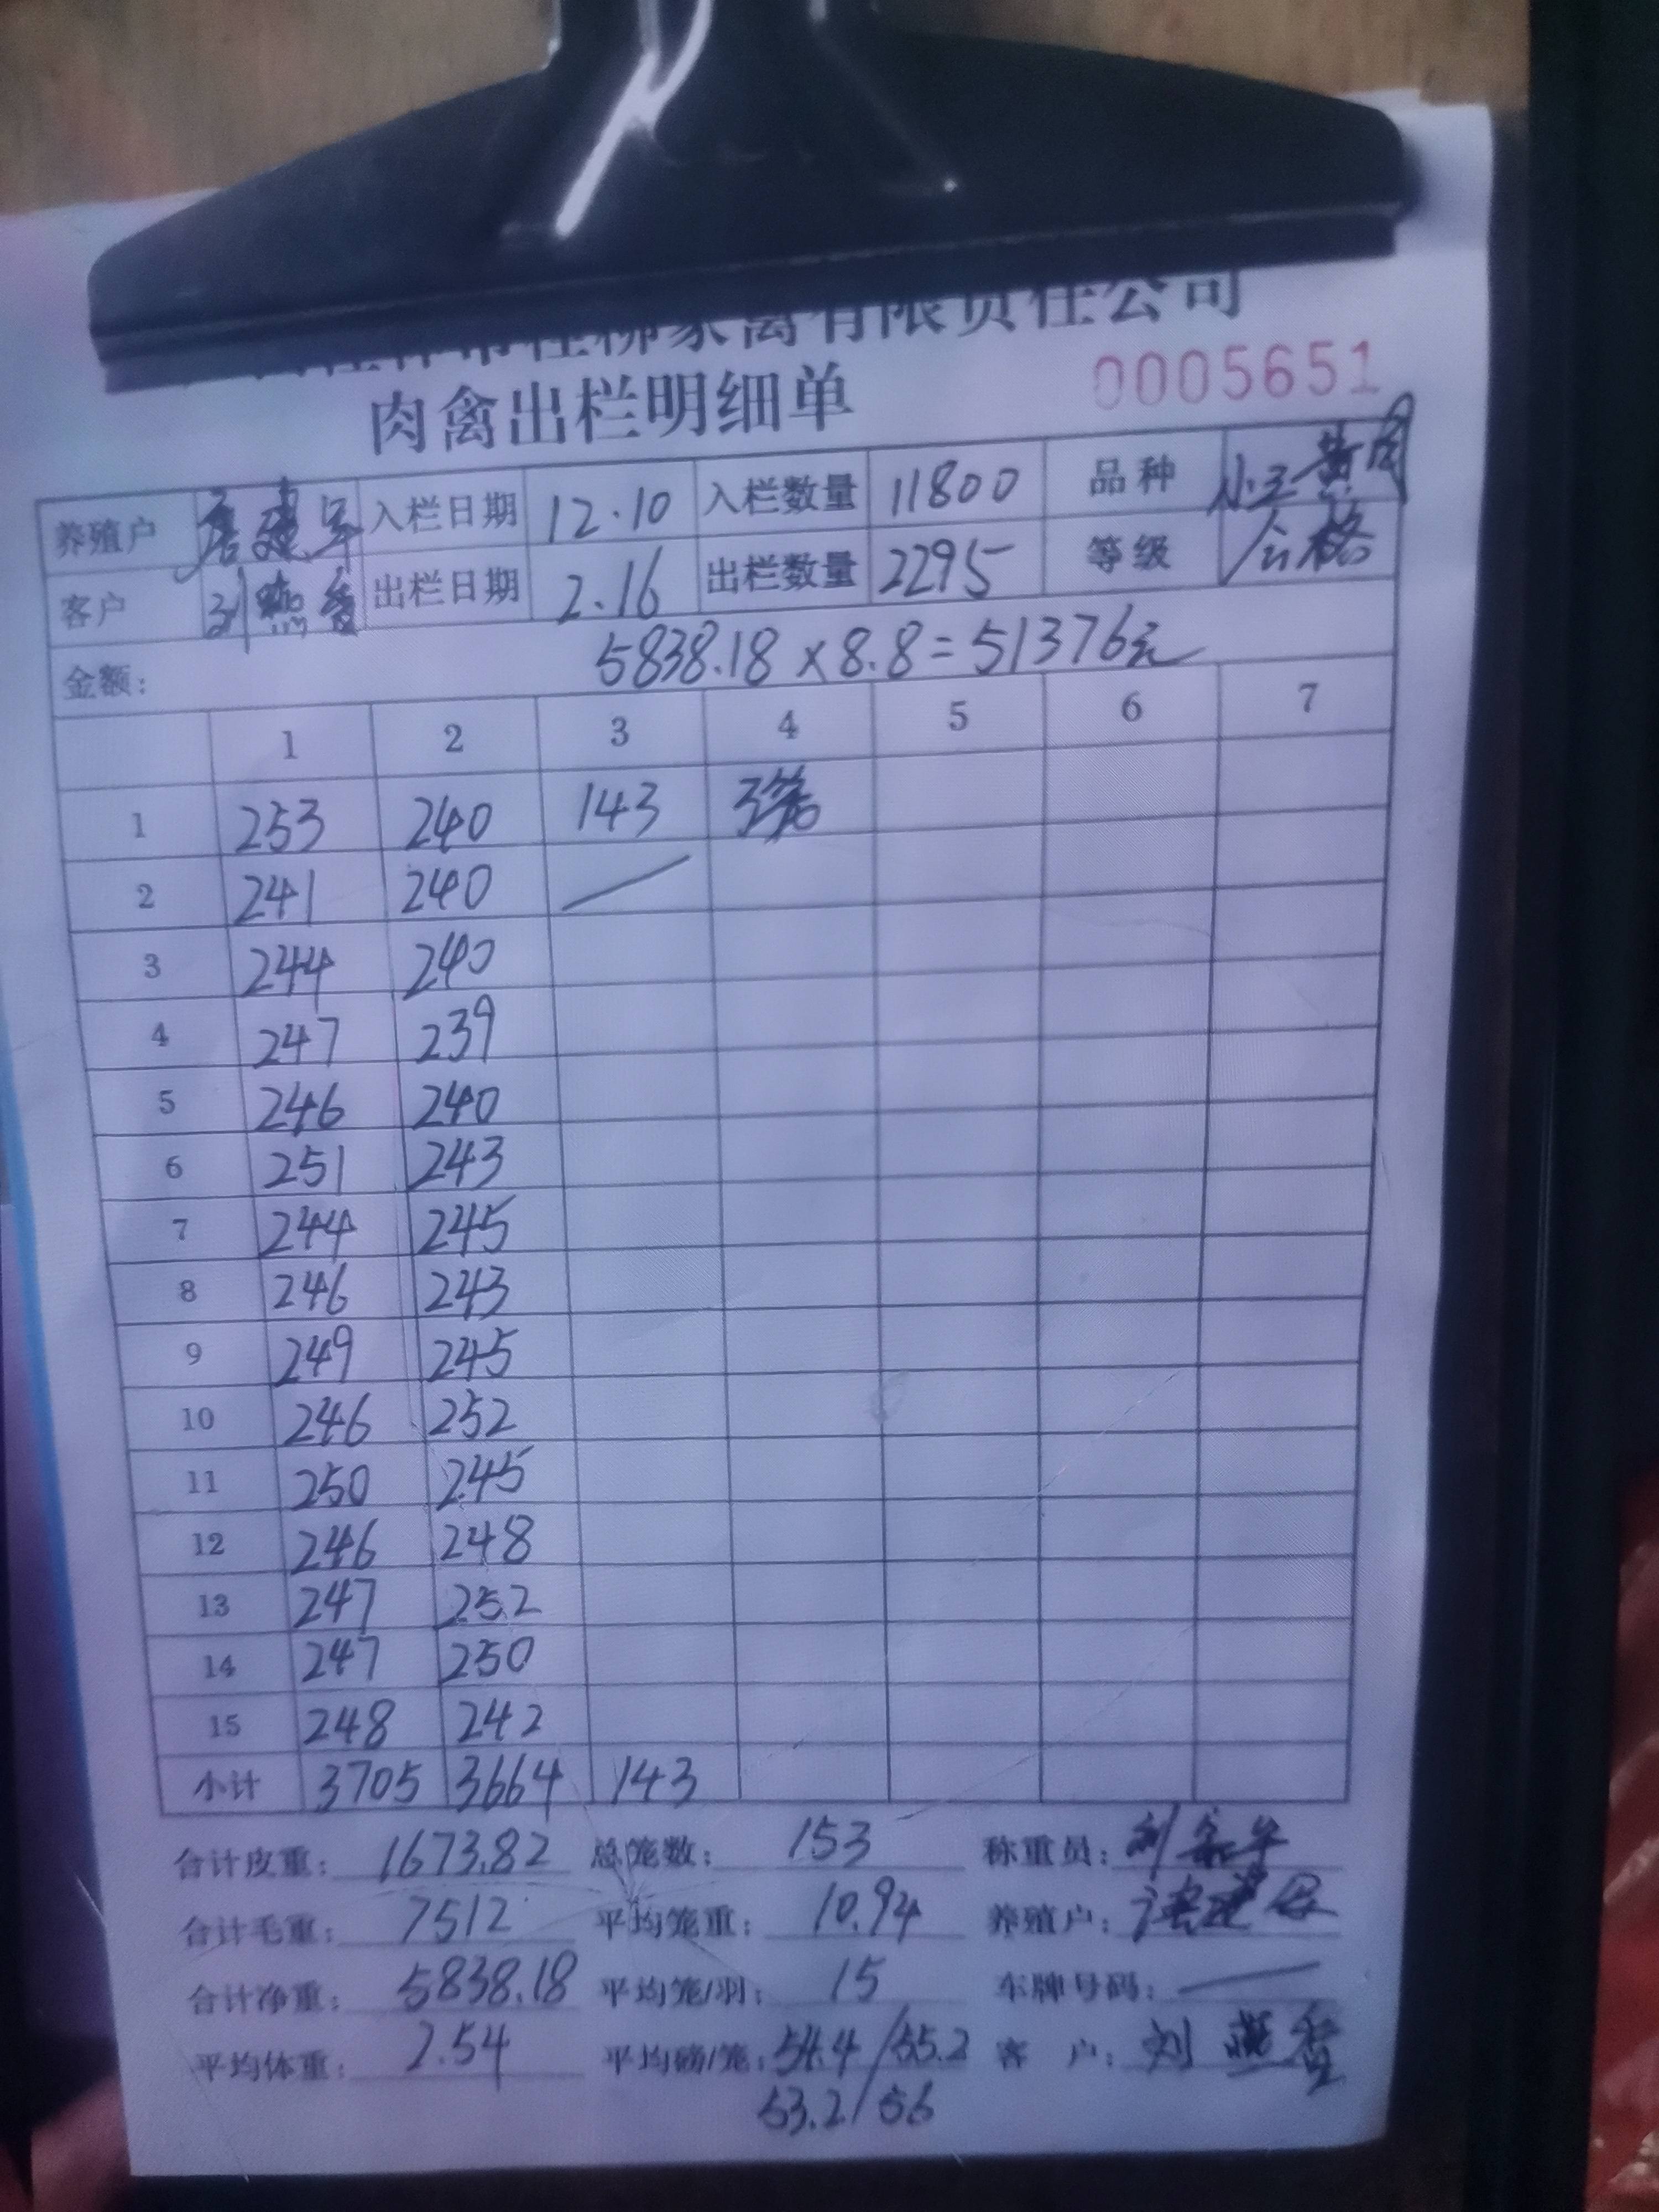 桂柳家禽有限责任公司
肉禽出栏明细单 0005651
养殖户 唐建军 入栏日期 12.10 入栏数量 11800 品种
客户 刘燕香 出栏日期 2.16 出栏数量 2295 等级 合格
金额: 5838.18×8.8=51376元
1 2 3 4 5 6 7
1 253 240 143 3笼
2 241 240 /
3 244 240
4 247 239
5 246 240
6 251 243
7 244 245
8 246 243
9 249 245
10 246 252
11 250 245
12 246 248
13 247 252
14 247 250
15 248 242
小计 3705 3664 143
合计皮重: 1673.82 总笼数: 153 称重员:
合计毛重: 7512 平均笼重: 10.94 养殖户:
合计净重: 5838.18 平均笼/羽: 15 车牌号码: —
平均体重: 2.54 平均磅/笼: 54.4/55.2 客 户: 刘燕香
53.2/56